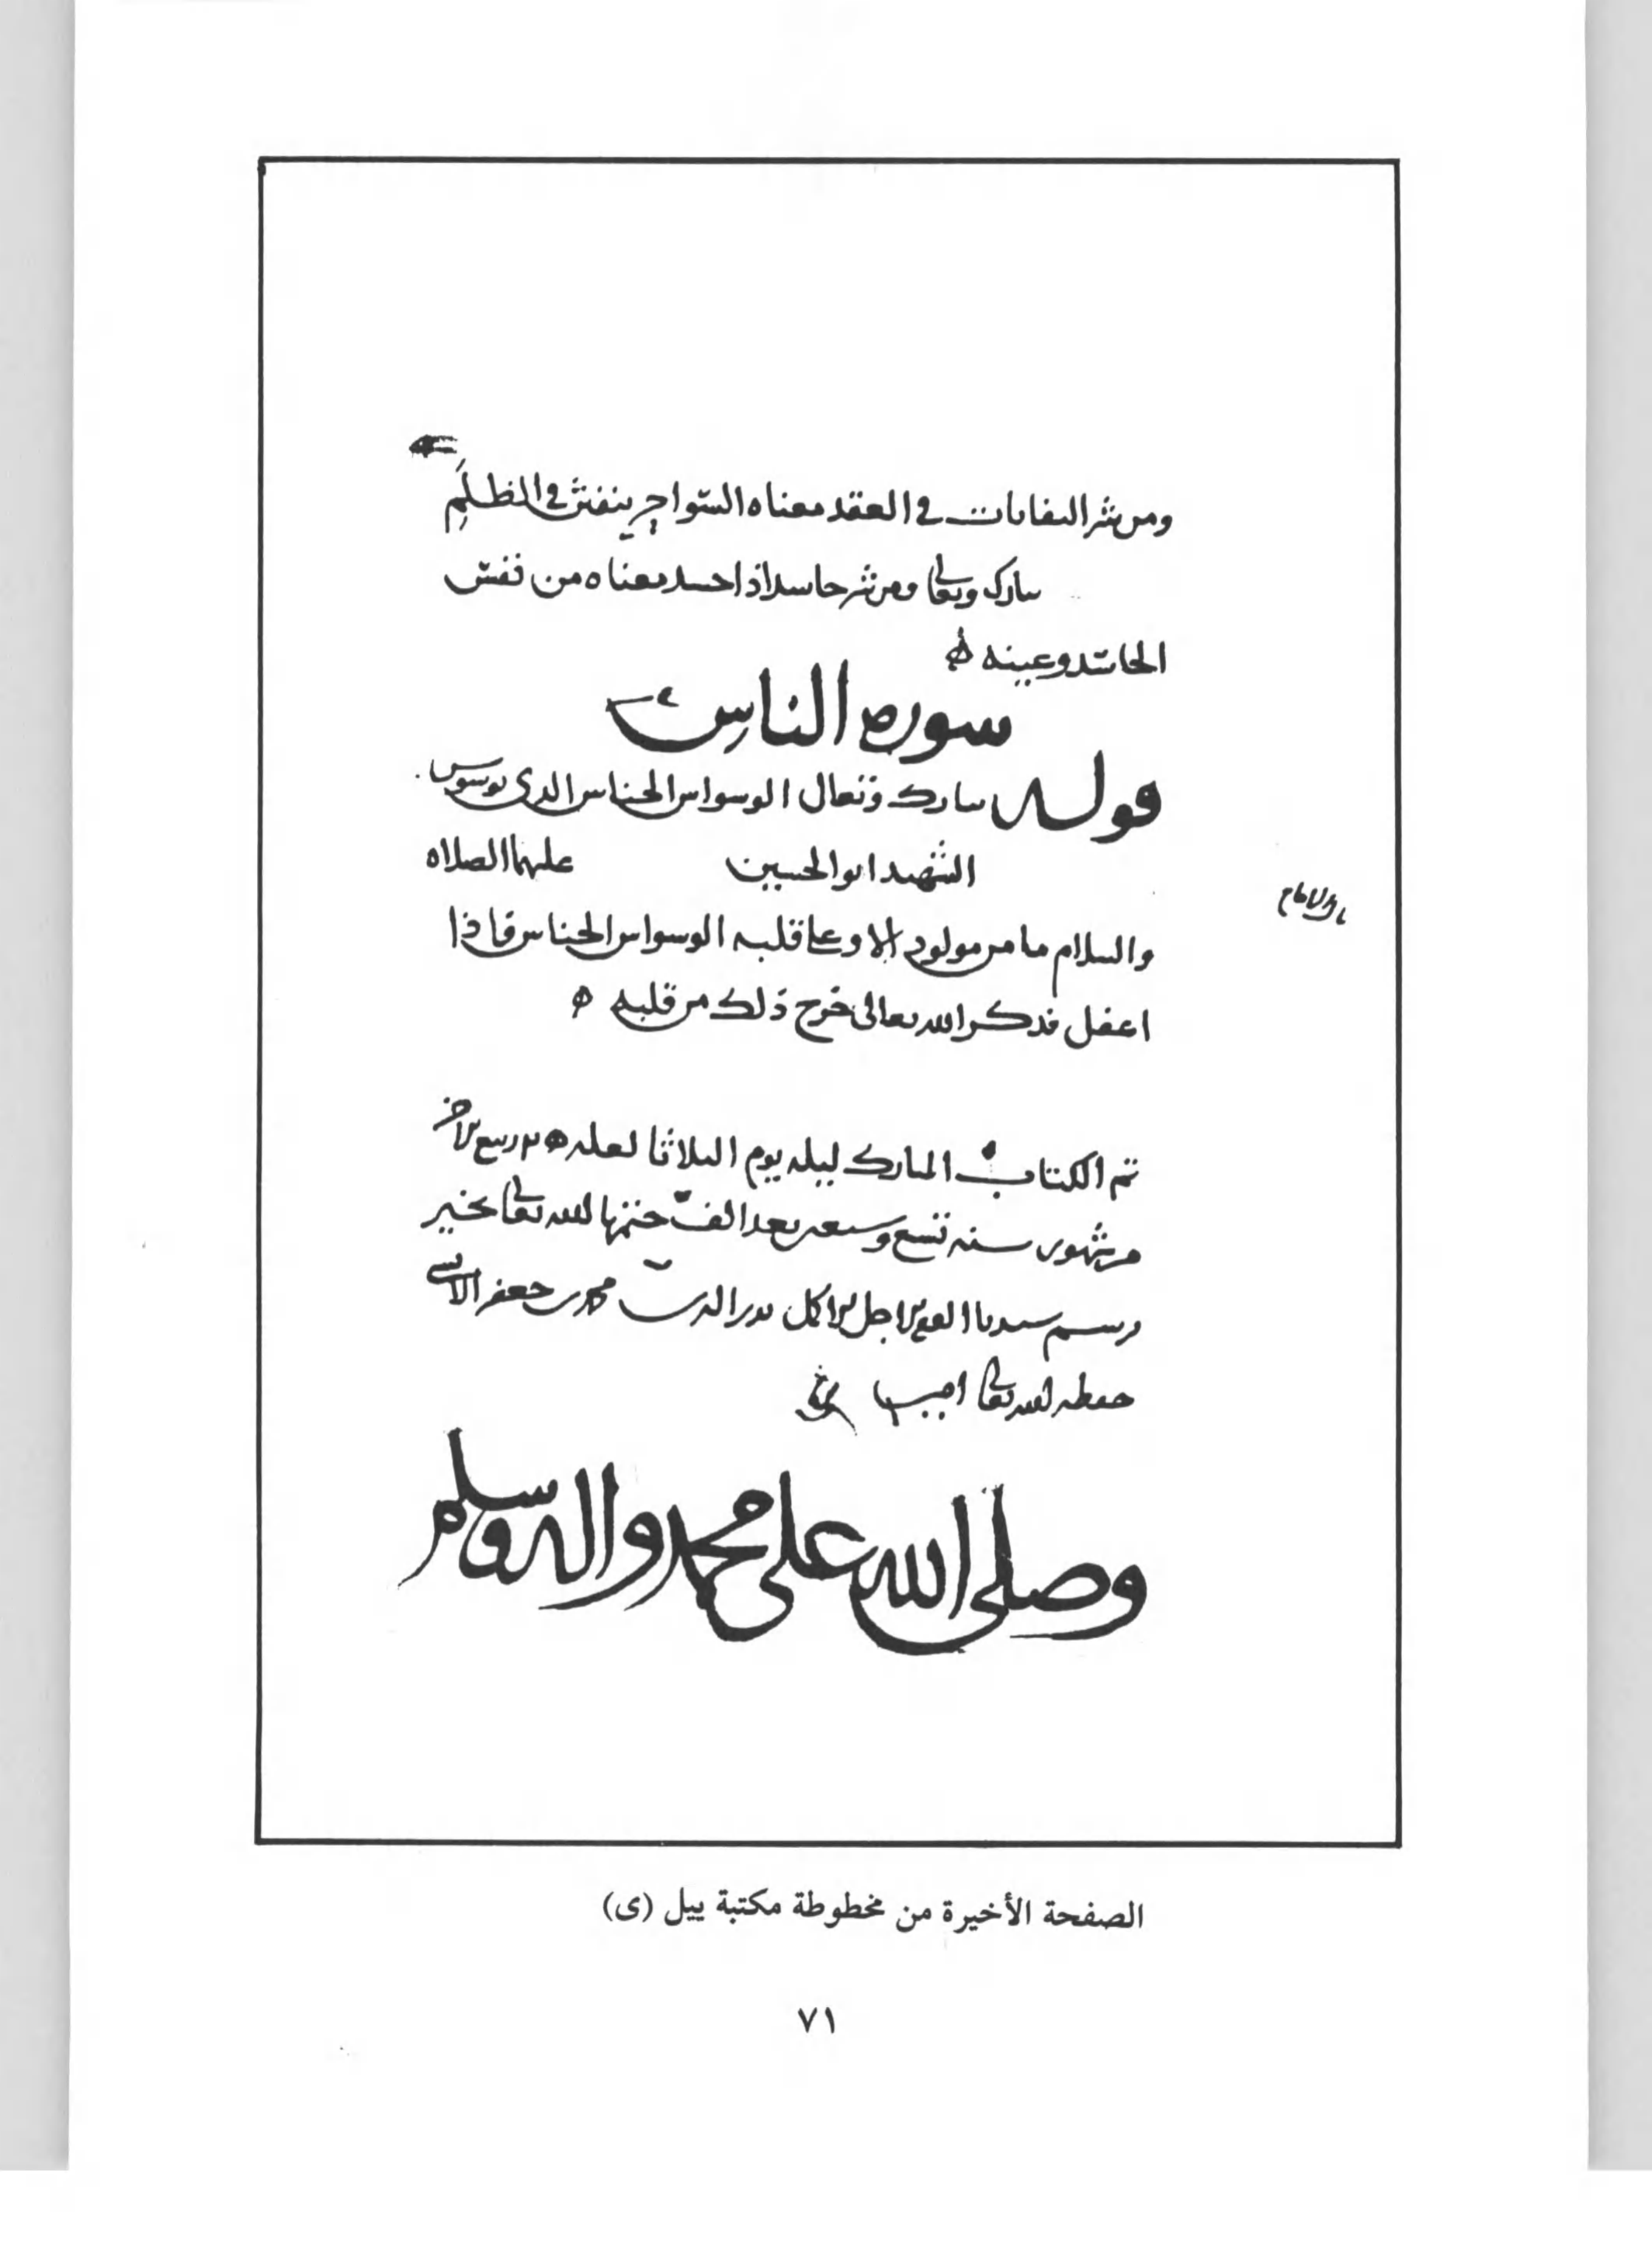 ومن شر النفاثات في العقد معناه السواحر ينفثن في الظلم
تبارك وتعالى ومن شر حاسد اذا حسد معناه من نفس
الحاسد وعينه ه
سوره الناس
قوله تبارك وتعالى الوسواس الخناس الذي يوسوس
الشهيد ابو الحسين عليهما الصلاه
قال الامام
والسلام ما من مولود الا وعلى قلبه الوسواس الخناس فاذا
اعقل فذكر الله تعالى خرج ذلك من قلبه ه
تم الكتاب المبارك ليله يوم الثلاثا لعله ربيع الاخر
من شهور سنه تسع وسبعين بعد الف ختمها الله تعالى بخير
برسم سيدنا الفقيه الاجل الاكمل بدر الدين محمد بن جعفر
حفظه الله تعالى امين
وصلى الله على محمد واله وسلم
الصفحة الأخيرة من مخطوطة مكتبة ييل (ى)
٧١